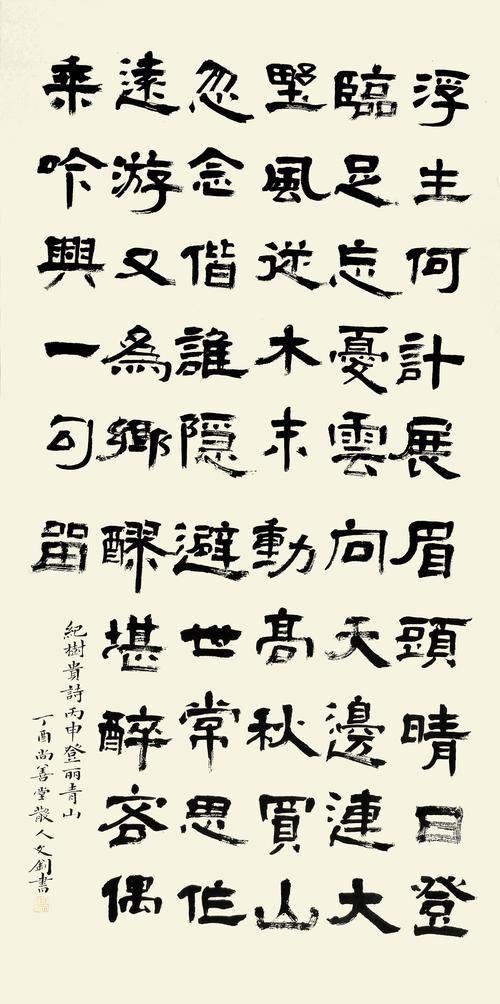 浮生何計展眉頭晴日登
臨足忘憂雲向天邊連大
墅風從木末動高秋買山
忽念偕誰隱避世常思作
遠游又為鄉醪堪醉客偶
乘吟興一句留
紀樹貴詩丙申登丽青山
丁酉尚善堂散人文劍書